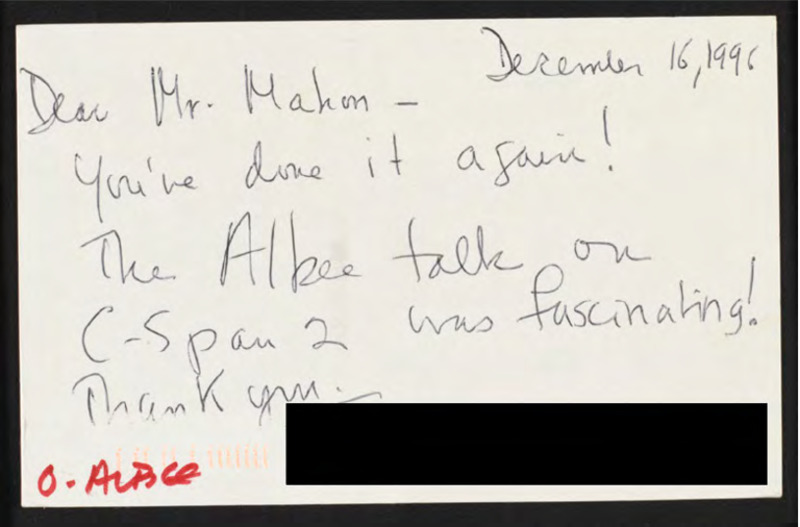 December 16, 1996
Dear Mr. Mahon -
You've done it again!
The Albee talk on
C-Span 2 was fascinating!
Thank you -
O - ALBEE